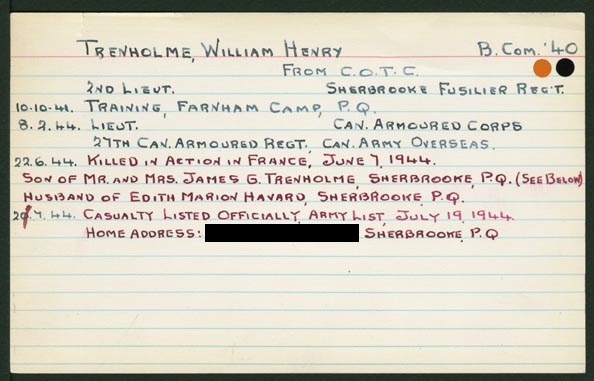 TRENHOLME, WILLIAM HENRY B. COM. '40
FROM C.O.T.C.
2ND LIEUT. SHERBROOKE FUSILIER REG'T.
10.10.41. TRAINING, FARNHAM CAMP, P.Q.
8.2.44. LIEUT. CAN. ARMOURED CORPS
27TH CAN. ARMOURED REGT., CAN. ARMY OVERSEAS.
22.6.44. KILLED IN ACTION IN FRANCE, JUNE 7, 1944.
SON OF MR. AND MRS. JAMES G. TRENHOLME, SHERBROOKE, P.Q. (SEE BELOW)
HUSBAND OF EDITH MARION HAVARD, SHERBROOKE, P.Q.
20.7.44. CASUALTY LISTED OFFICIALLY, ARMY LIST, JULY 19, 1944.
HOME ADDRESS: SHERBROOKE, P.Q